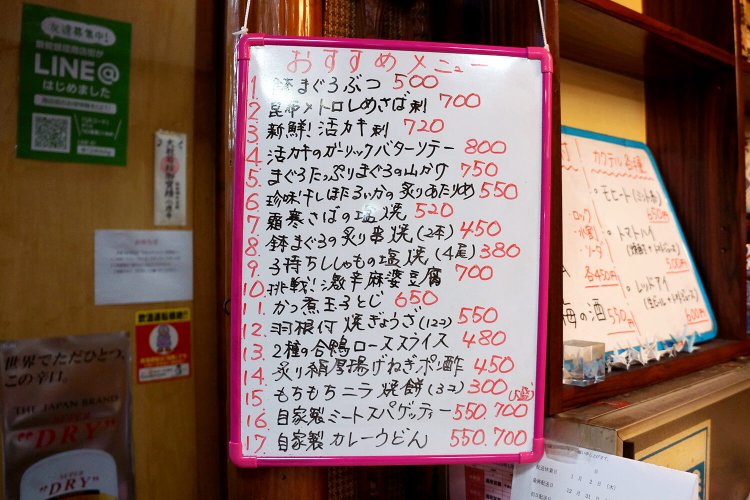 友達募集中!
LINE@
はじめました
おすすめメニュー
1. 鉢まぐろぶつ 500
2. 昆布〆トロしめさば刺 700
3. 新鮮!活カキ刺 720
4. 活カキのガーリックバターソテー 800
5. まぐろたっぷりまぐろの山かけ 750
6. 珍味!干しほたるいかの炙りあたりめ 550
7. 霜寒さばの塩焼 520
8. 鉢まぐろの炙り串焼(2本) 450
9. 子持ちししゃもの塩焼(4尾) 380
10. 挑戦!激辛麻婆豆腐 700
11. かつ煮玉子とじ 650
12. 羽根付焼ぎょうざ(12コ) 550
13. 2種の合鴨ローススライス 480
14. 炙り絹厚揚げねぎポン酢 450
15. もちもちニラ焼餅(3コ) 300
16. 自家製ミートスパゲッティー 550.700
17. 自家製カレーうどん 550.700
カクテル各種
・モヒート(ミント系)
650円
・トマトハイ
500円
・レッドアイ
600円
ロック
水割
ソーダ
各450円
梅の酒 550円
飲酒運転撲滅!!
世界でただひとつ、
この辛口。
THE JAPAN BRAND
SUPER
"DRY"
SUPER
"DRY"
1月2日(木)
12月31日